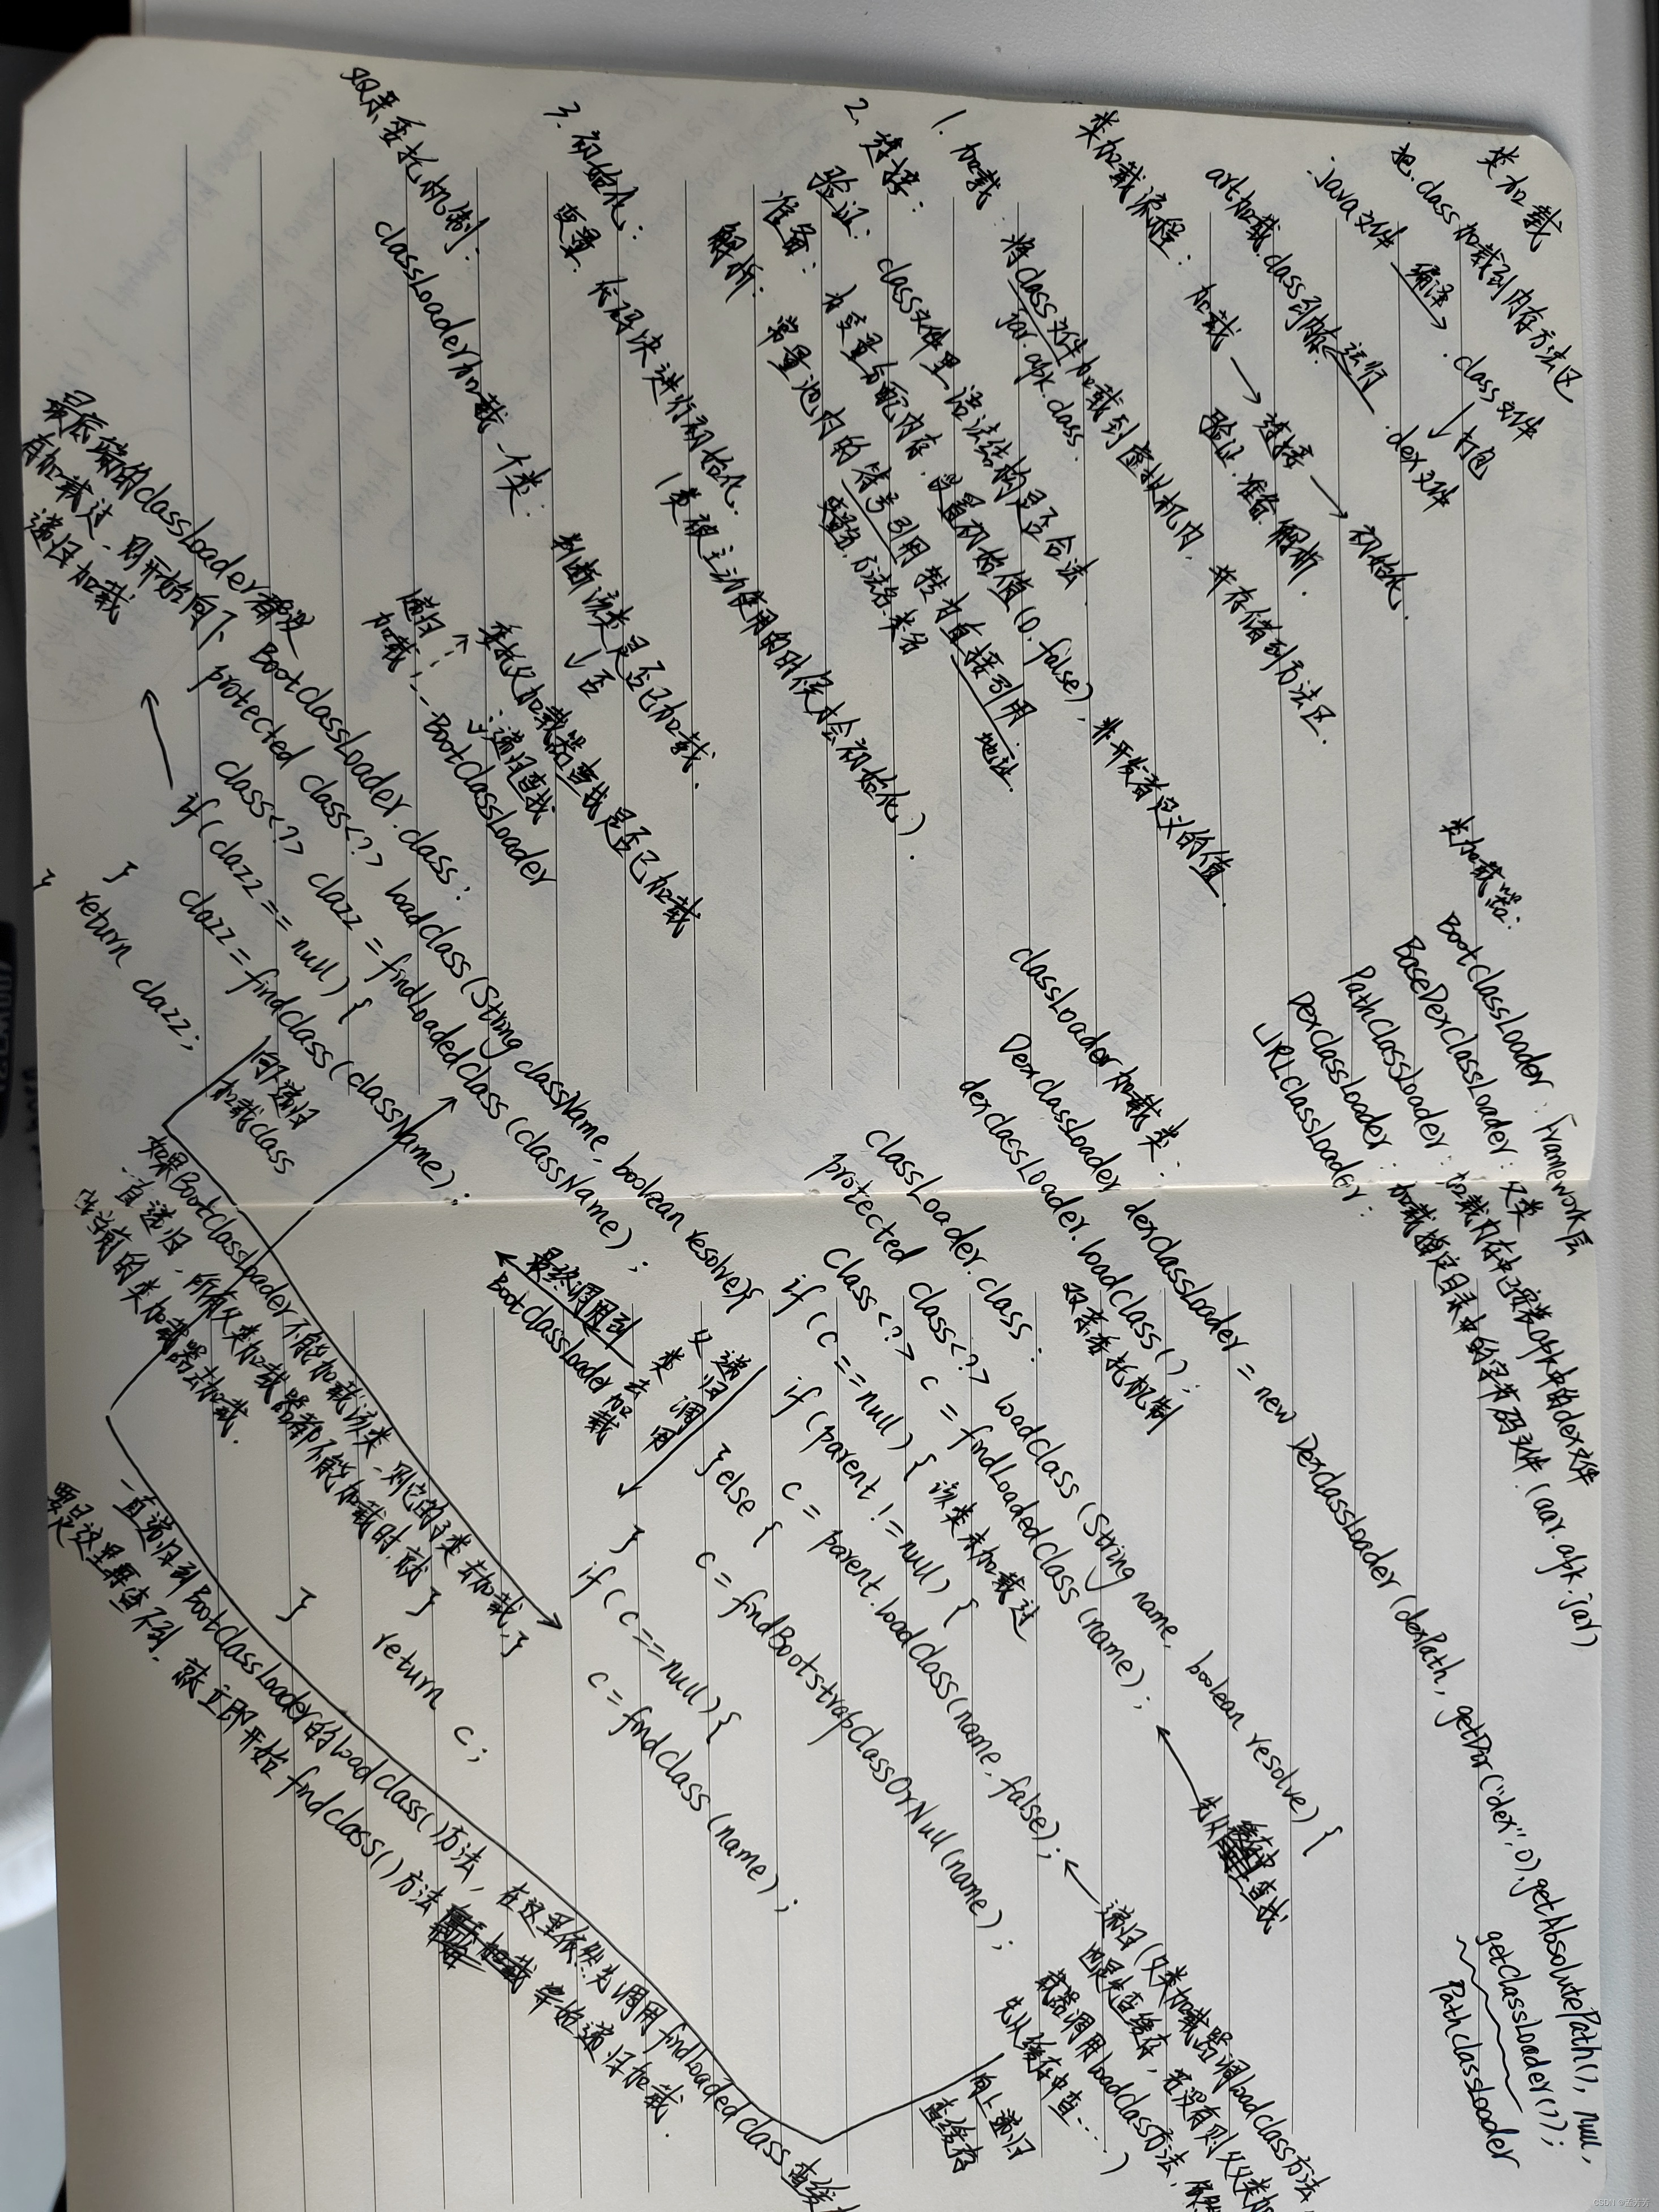 类加载
把.class加载到内存方法区
.java文件 编译→ .class文件
↓打包
art加载.class到内存 ←运行 .dex文件
类加载流程: 加载 → 连接 → 初始化.
验证.准备.解析.
1. 加载: 将class文件加载到虚拟机内, 并存储到方法区.
jar.apk.class.
2. 连接:
验证: class文件里语法结构是否合法
准备: 为变量分配内存.设置初始值(0.false), 非开发者定义的值.
解析: 常量池内的符号引用 转为直接引用.
变量名.方法名.类名 地址
3. 初始化:
变量、代码块进行初始化.
(类被主动使用的时候才会初始化).
双亲委托机制:
classLoader加载一个类: 判断该类是否已加载.
↓否
委托父加载器查找是否已加载
递归加载 ↓递归查找
BootclassLoader
最底端的classLoader都没
有加载过、则开始向下
递归加载
BootclassLoader.class:
protected class<??> loadclass(String className, boolean resolve){
class<??> clazz = findLoadedclass(className);
if(clazz == null) {
clazz = findclass(className);
}
return clazz;
}
向下递归
加载class
类加载器:
BootclassLoader: Framework层
BaseDexclassLoader: 父类
PathclassLoader: 加载内存中已安装apk中的dex文件
DexclassLoader: 加载指定目录中的字节码文件.(aar.apk.jar)
URLclassLoader:
classLoader加载类:
DexclassLoader dexclassLoader = new DexclassLoader(dexPath, getDir("dex",0).getAbsolutePath(), null,
getclassLoader());
PathclassLoader
dexclassLoader.loadclass();
双亲委托机制
classLoader.class:
protected class<??> loadclass(String name, boolean resolve) {
Class<??> c = findLoadedclass(name); ← 先从缓存中查找
if(c==null) { 该类未加载过
if(parent != null) {
c = parent.loadclass(name, false); ← 递归(父类加载器调loadclass方法
也是先查缓存,若没有则父父类加
载器调用loadclass方法,
先从缓存中查……)
} else {
c = findBootstrapClassOrNull(name);
}
if(c==null) {
c = findclass(name);
}
}
return c;
}
父类
递归调用
最终调用到
BootclassLoader去加载
向上递归
查缓存
如果BootclassLoader不能加载该类、则它的子类去加载,
一直递归、所有父类加载器都不能加载时.就
由当前的类加载器去加载.
一直递归到BootclassLoader的loadclass()方法, 在这里依然为调用findLoadedclass查缓
要是这里再查不到, 就立即开始findclass()方法 递归加载.
CSDN @孟芳芳